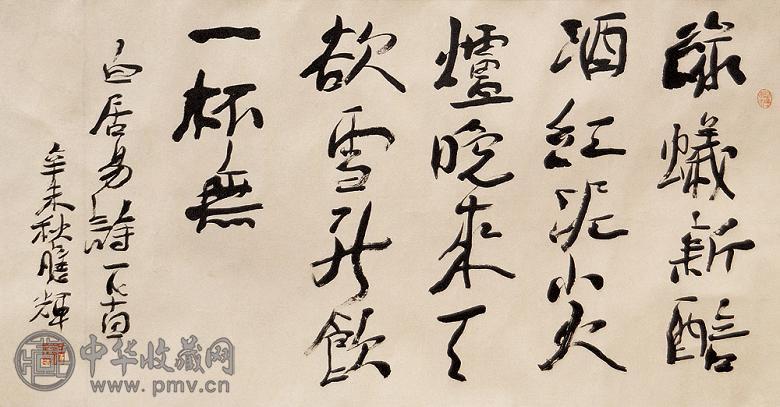 綠蟻新醅
酒紅泥小火
爐晚來天
欲雪能飲
一杯無
白居易詩一首
辛未秋輝
中华收藏网
www.pmv.cn